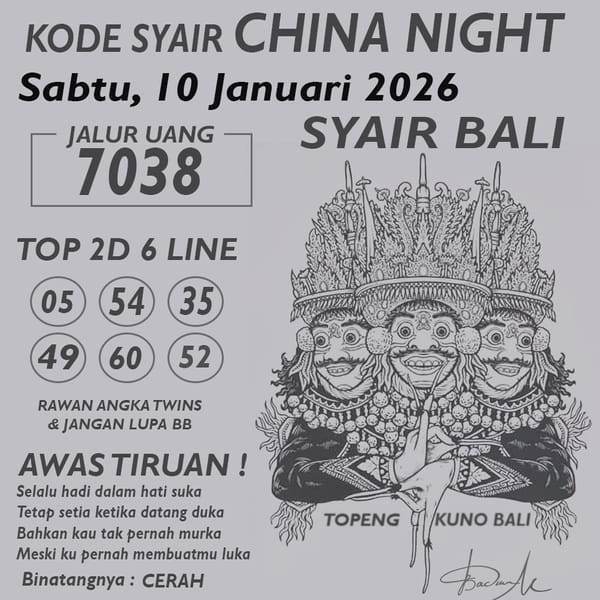 KODE SYAIR CHINA NIGHT
Sabtu, 10 Januari 2026
JALUR UANG
7038
SYAIR BALI
TOP 2D 6 LINE
05 54 35
49 60 52
RAWAN ANGKA TWINS
& JANGAN LUPA BB
AWAS TIRUAN !
Selalu hadi dalam hati suka
Tetap setia ketika datang duka
Bahkan kau tak pernah murka
Meski ku pernah membuatmu luka
Binatangnya : CERAH
TOPENG KUNO BALI